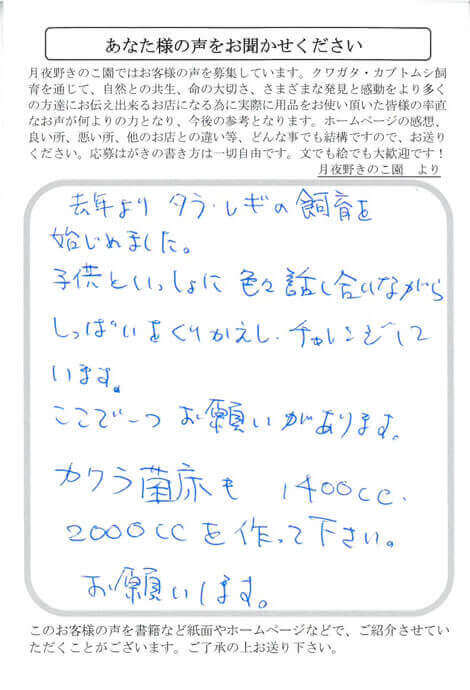 あなた様の声をお聞かせください
月夜野きのこ園ではお客様の声を募集しています。クワガタ・カブトムシ飼
育を通じて、自然との共生、命の大切さ、さまざまな発見と感動をより多く
の方達にお伝え出来るお店になる為に実際に用品をお使い頂いた皆様の率直
なお声が何よりの力となり、今後の参考となります。ホームページの感想、
良い所、悪い所、他のお店との違い等、どんな事でも結構ですので、お送り
ください。応募はがきの書き方は一切自由です。文でも絵でも大歓迎です!
月夜野きのこ園 より
去年より タラ・レギの飼育を
始じめました。
子供といっしょに 色々話し合いながら
しっぱいをくりかえし、チャレンジして
います。
ここで一つ お願いがあります。
カワラ菌床も 1400cc、
2000ccを作って下さい。
お願いします。
このお客様の声を書籍など紙面やホームページなどで、ご紹介させてい
ただくことがございます。ご了承の上お送り下さい。